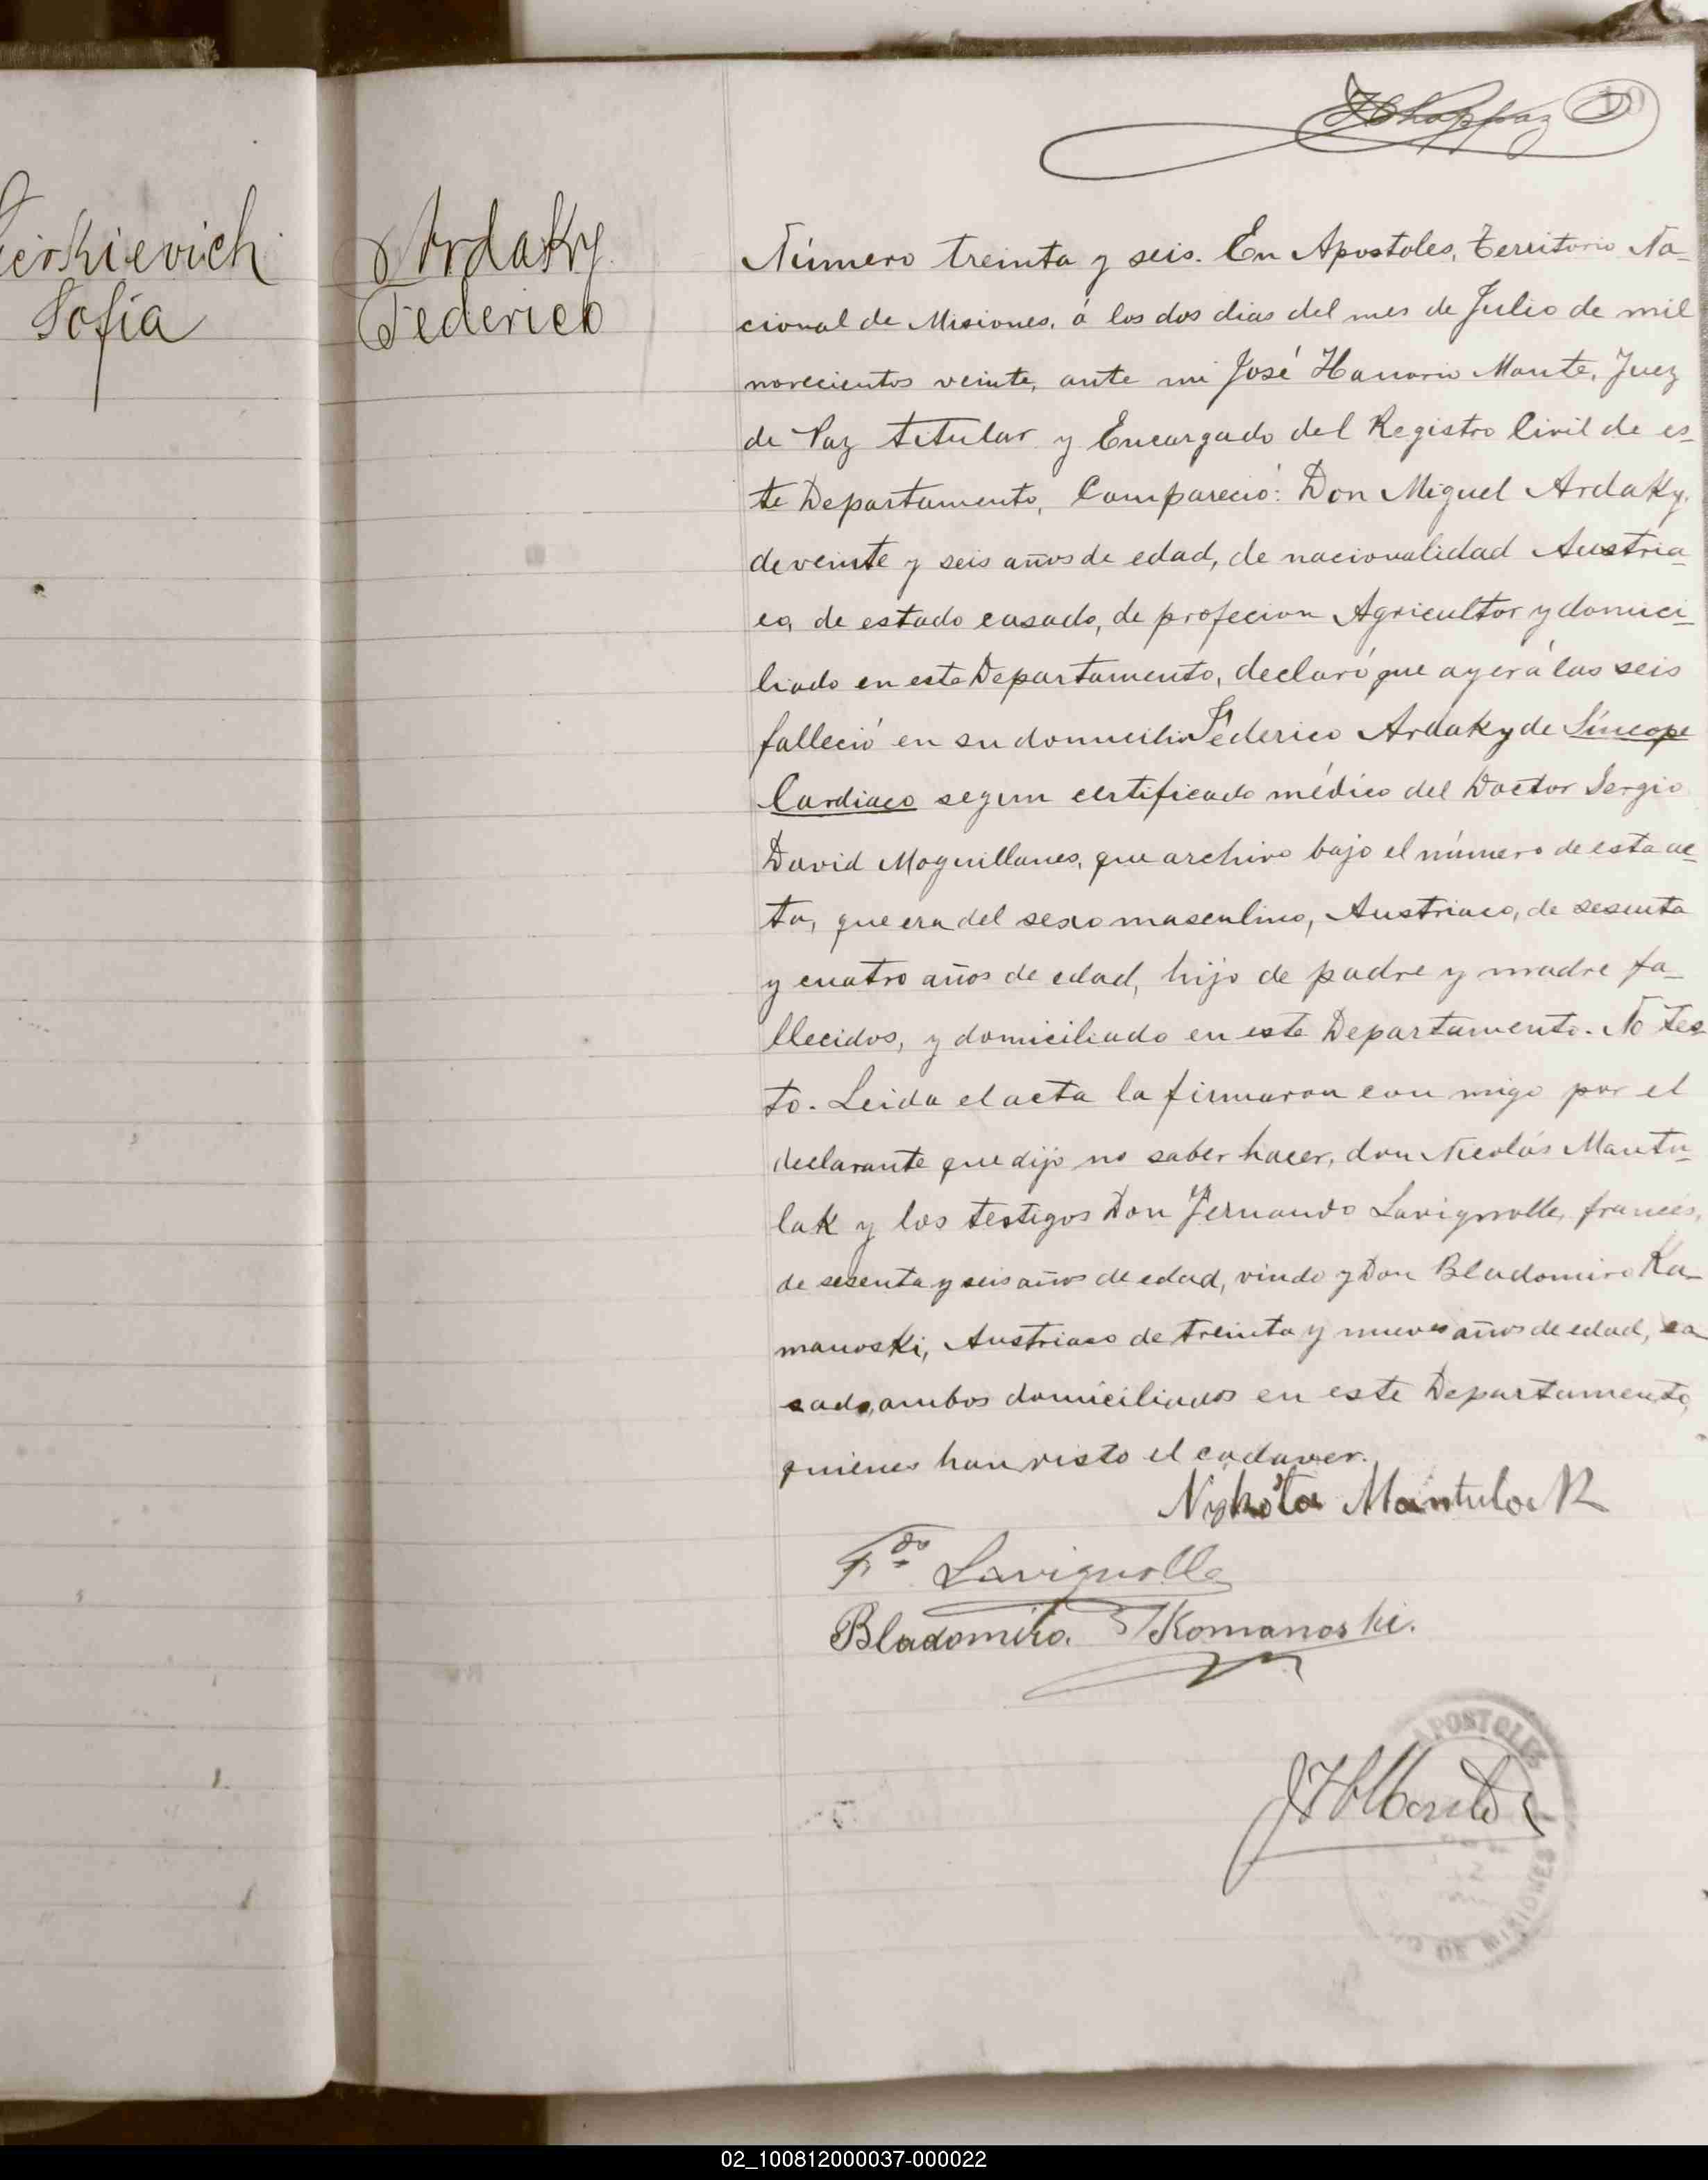 Sofía
Ardaky
Federico
Número treinta y seis. En Apostoles, Territorio Na-
cional de Misiones, á los dos dias del mes de Julio de mil
novecientos veinte, ante mi José Honorio Monte, Juez
de Paz titular y Encargado del Registro Civil de es-
te Departamento, Compareció: Don Miguel Ardaky,
de veinte y seis años de edad, de nacionalidad Austria-
co, de estado casado, de profecion Agricultor y domici-
liado en este Departamento, declaró que ayer á las seis
falleció en su domicilio Federico Ardaky de Síncope
Cardiaco segun certificado médico del Doctor Sergio
David Moguillanes, que archivo bajo el número de esta ac-
ta, que era del sexo masculino, Austriaco, de sesenta
y cuatro años de edad, hijo de padre y madre fa-
llecidos, y domiciliado en este Departamento. No tes-
to. Leida el acta la firmaron con migo por el
declarante que dijo no saber hacer, don Nicolás Mantu-
lak y los testigos Don Fernando Lavignolle, francés,
de sesenta y seis años de edad, viudo y Don Bladomiro Ko-
manoski, Austriaco de treinta y nueve años de edad, ca-
sado, ambos domiciliados en este Departamento,
quienes han visto el cadaver.
Nykola Mantulak
Fdo Lavignolle
Bladomiro Komanoski.
APOSTOLES
MISIONES
02_100812000037-000022